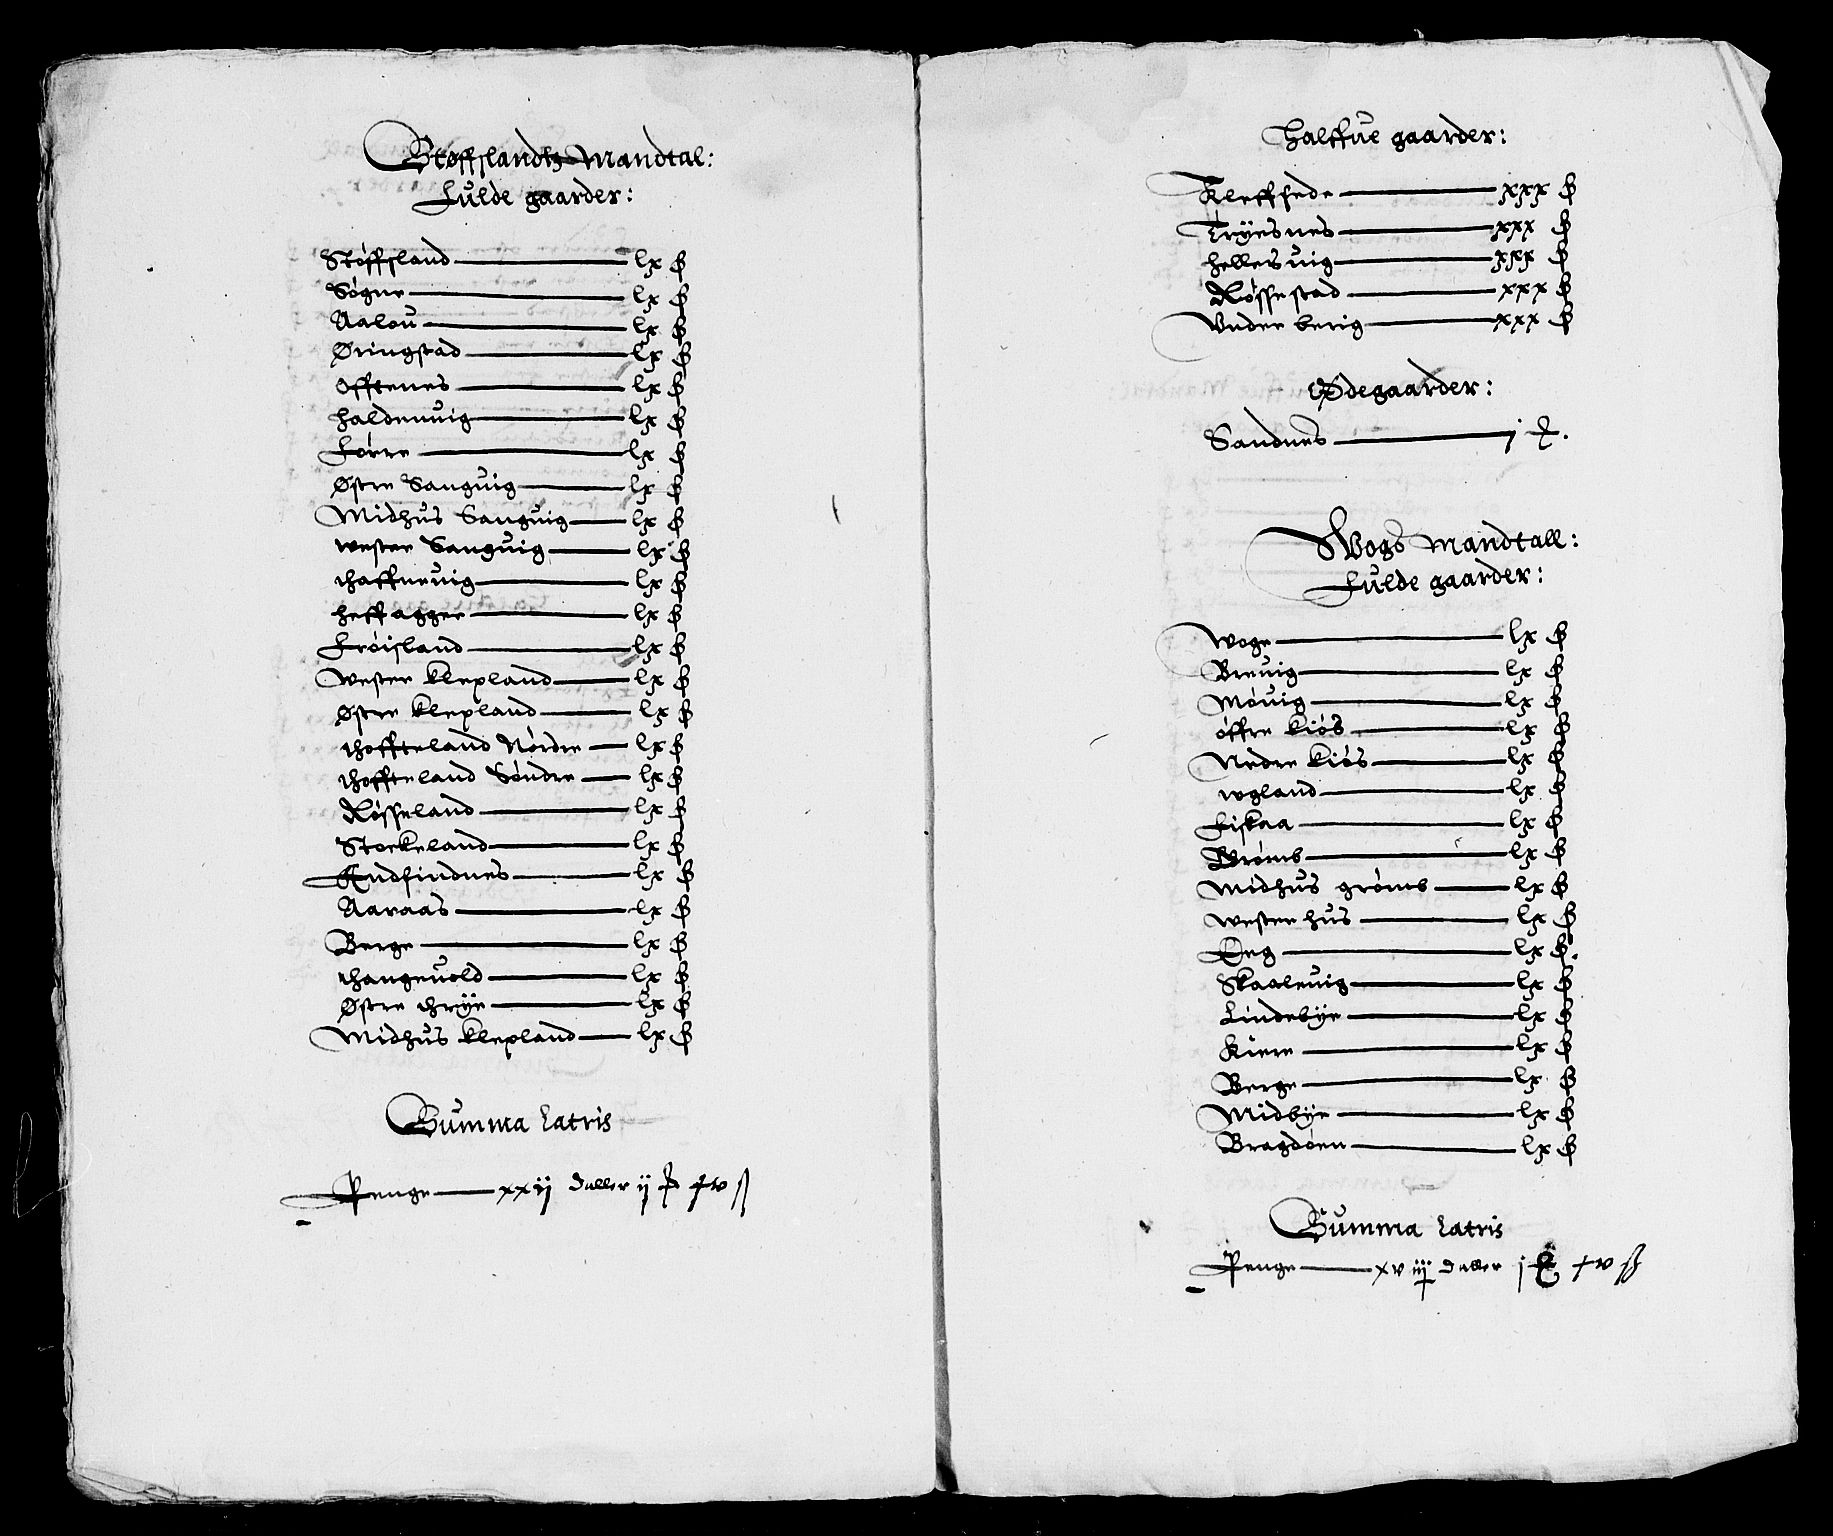 Støfflandtz Mandtal:
Fulde gaarder:
Støffland lx ß
Søgne lx ß
Aalou lx ß
Øringstad lx ß
Offtenes lx ß
Haldenuig lx ß
Førre lx ß
Østre Sanguig lx ß
Midhus Sanguig lx ß
Wester Sanguig lx ß
Haffneuig lx ß
Heff agger lx ß
Frøisland lx ß
Wester Klepland lx ß
Østre Klepland lx ß
Thoffteland Nørdre lx ß
Thoffteland Søndre lx ß
Røsseland lx ß
Stockeland lx ß
Andfindnes lx ß
Aaraas lx ß
Berge lx ß
Thangeuold lx ß
Østre Thrye lx ß
Midhus Klepland lx ß
Summa Latris
Penge xxij daller ij
Halffue gaarder:
Kleffsede xxx ß
Tryesnes xxx ß
Hellersuig xxx ß
Røssestad xxx ß
Vnder berig xxx ß
Ødegaarder:
Sandnes j
Wogs Mandtall:
Fulde gaarder:
Woge lx ß
Breuig lx ß
Møuig lx ß
Øffre Kiøs lx ß
Nedre Kiøs lx ß
Wgland lx ß
Fiskaa lx ß
Grømb lx ß
Midhus grømb lx ß
Westerhus lx ß
Eeg lx ß
Skaaleuig lx ß
Lindebye lx ß
Kiere lx ß
Berge lx ß
Midbye lx ß
Bragdøen lx ß
Summa Latris
Penge xviij daller j